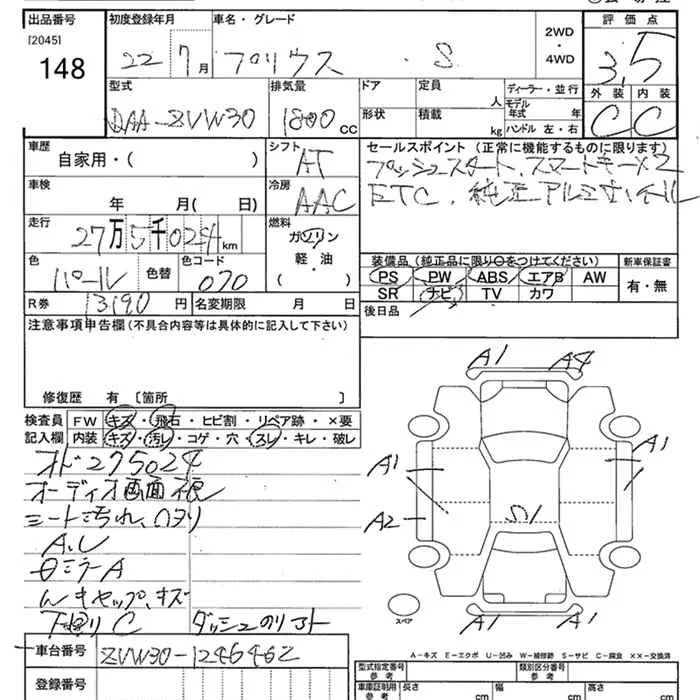 出品番号 初度登録年月 車名・グレード 評価点
[2045] 148 22 7月 プリウス ・S 2WD ・ 4WD 3.5
型式 排気量 ドア 定員 人 ディーラー・並行 外装 内装
DAA-ZVW30 1800 CC 形状 積載 kg モデル年式 年 ハンドル 左・右 C C
車歴 シフト セールスポイント (正常に機能するものに限ります)
自家用・( ) AT プッシュスタート、スマートキー×2
車検 冷房 ETC、純正アルミホイル
年 月( 日) AAC
走行 燃料
27万5千024km ガソリン
軽・油
( )
色 色替 色コード 装備品 (純正品に限り○をつけてください) 新車保証書
パール 070 PS PW ABS エアB AW 有・無
SR ナビ TV カワ
R券 13190円 名変期限 月 日 後日品
注意事項申告欄(不具合内容等は具体的に記入して下さい)
修復歴 有 [箇所 ]
検査員 FW キズ・飛石・ヒビ割・リペア跡・×要
記入欄 内装 キズ・汚レ・コゲ・穴・スレ・キレ・破レ
オド275024
オーディオ画面
シート汚れ、
A.U
ミラーA
キャップ、キズ
下回りC ダッシュ
車台番号 ZVW30-1246462
登録番号
A1 A4
A1 A1
A2 S1
スペア
A1 A1
A-キズ E-エクボ U-凹み W-補修跡 S-サビ C-腐食 ××-交換済
型式指定番号 参考 類別区分番号 参考
車庫証明用 参考 長さ cm 幅 cm 高さ cm